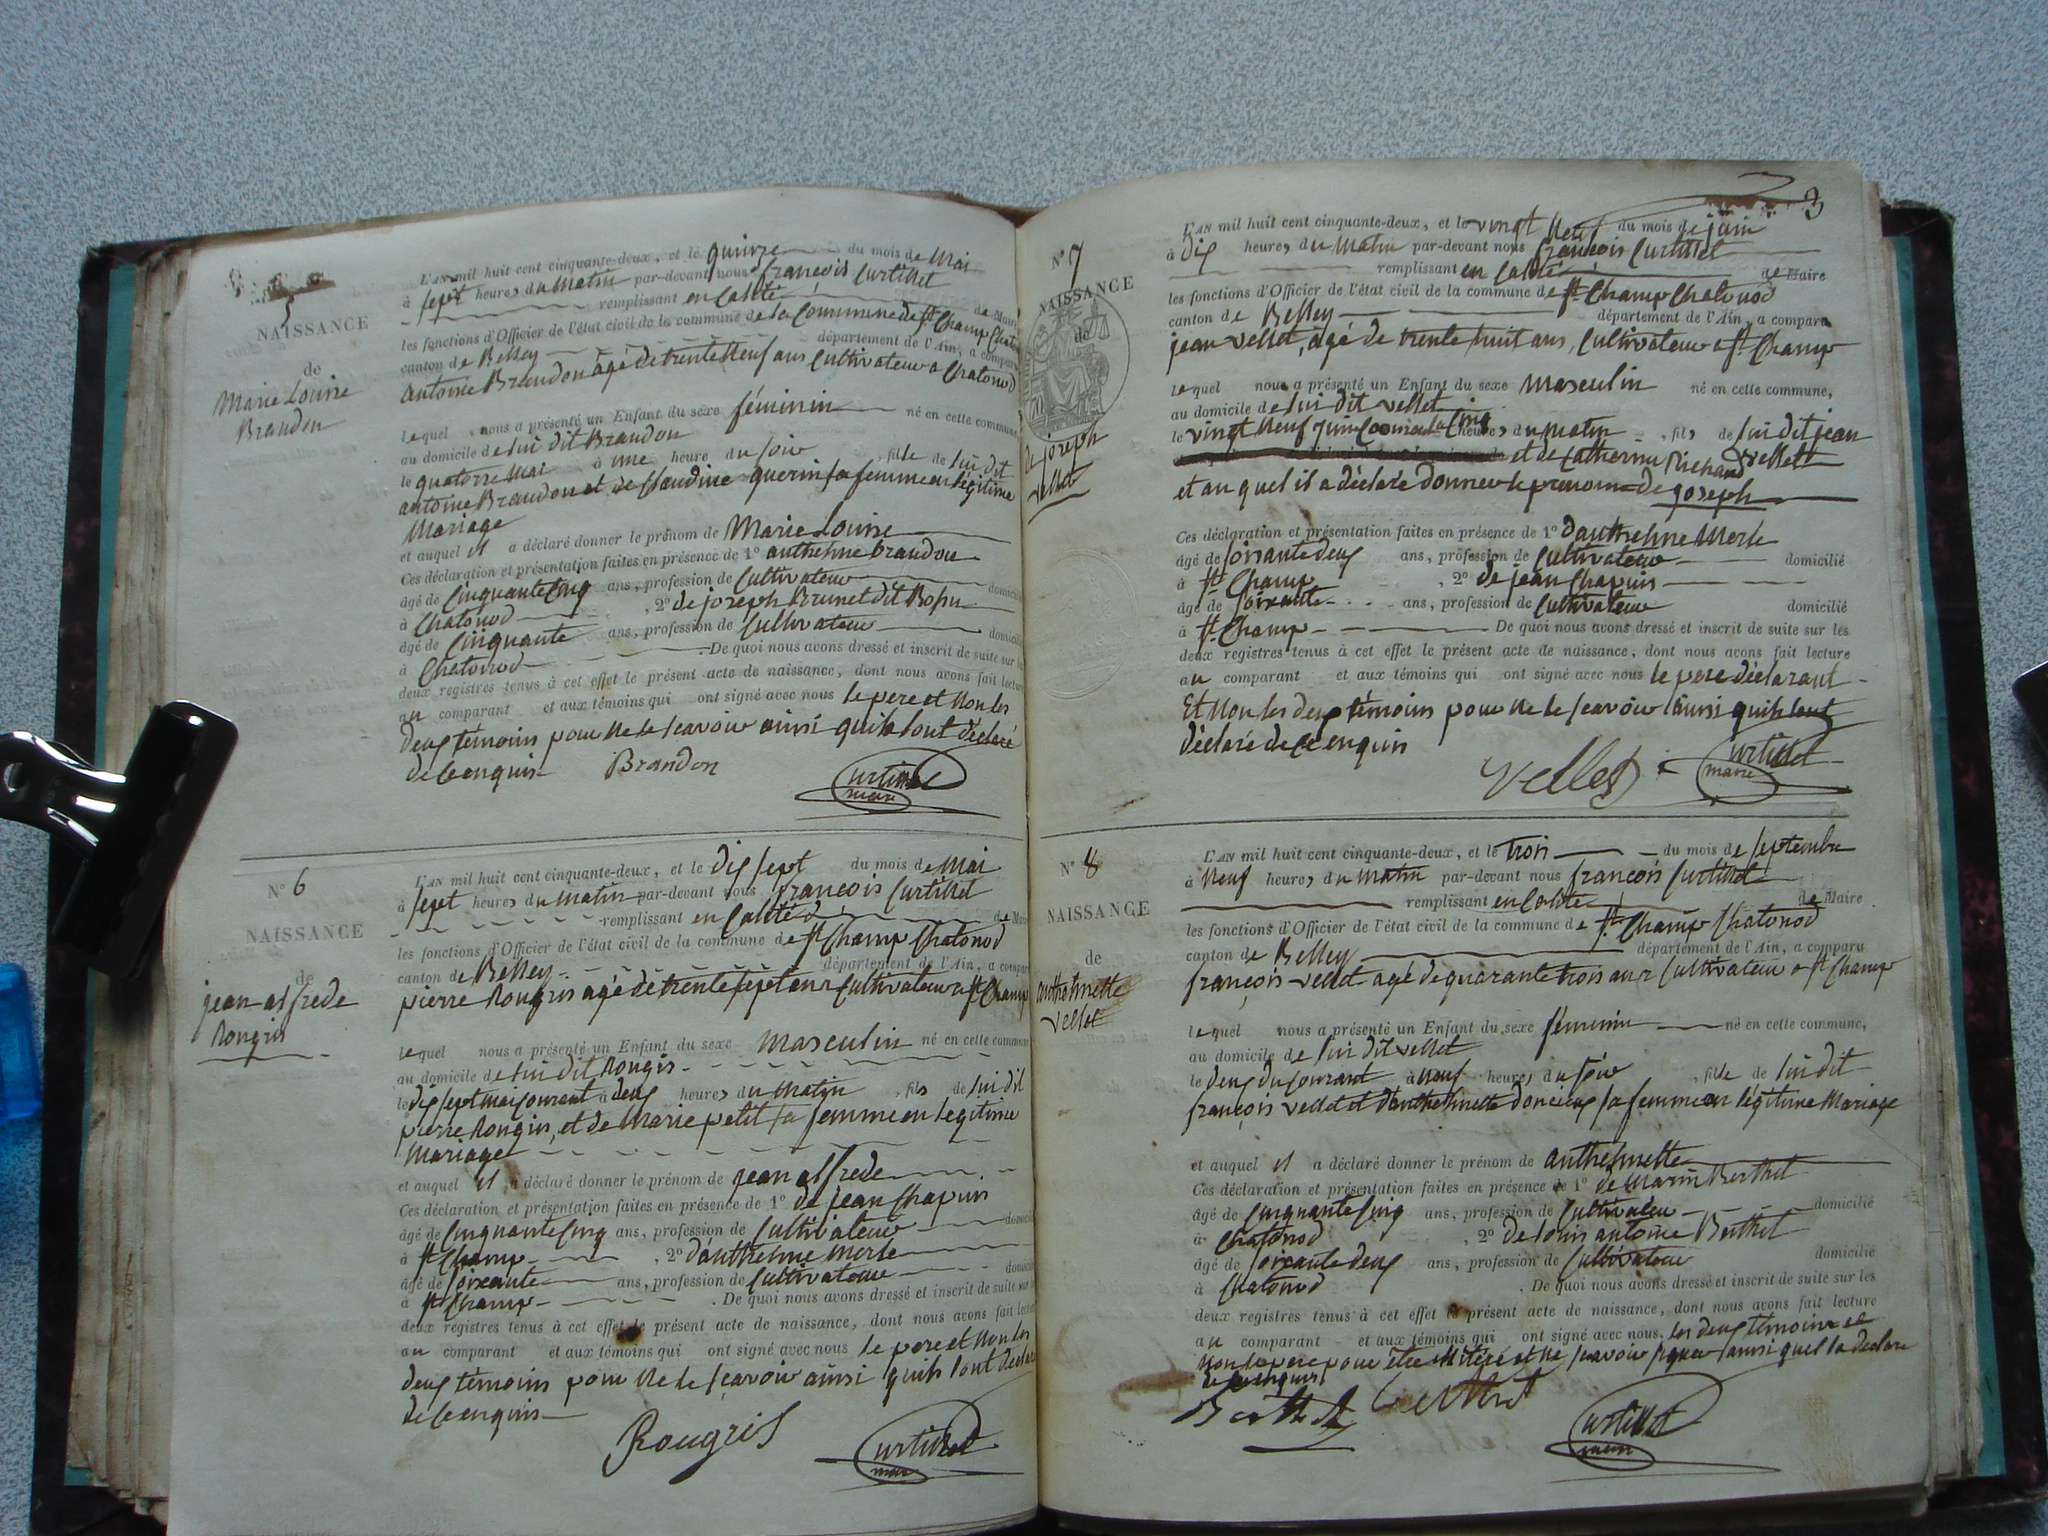 5
NAISSANCE
de
Marie Louise
Brandon
L'AN mil huit cent cinquante-deux, et le quinze du mois de Mai
à sept heures du Matin par-devant nous françois Curtillet
remplissant en Calité de Maire
les fonctions d'Officier de l'état civil de la commune de la Commune de St Champ Chat
canton de Belley département de l'Ain, a comparu
antoine Brandon âgé de trente Neuf ans Cultivateur a Chatonod
lequel nous a présenté un Enfant du sexe féminin né en cette commune,
au domicile de lui dit Brandon
le quatorze Mai à une heure du soir, fille de lui dit
antoine Brandon et de Claudine guerin sa femme en légitime
Mariage
et auquel il a déclaré donner le prénom de Marie Louise
Ces déclaration et présentation faites en présence de 1º anthelme brandon
âgé de Cinquante Cinq ans, profession de Cultivateur domicilié
à Chatonod, 2º de joseph Brunet dit
âgé de Cinquante ans, profession de Cultivateur domicilié
à Chatonod. De quoi nous avons dressé et inscrit de suite sur les
deux registres tenus à cet effet le présent acte de naissance, dont nous avons fait lecture
au comparant et aux témoins qui ont signé avec nous le pere et Non les
deux témoins pour Ne le scavoir ainsi quils lont déclaré
de ce enquis
Brandon
Curtillet
maire
Nº 6
NAISSANCE
de
jean alfrede
Rougis
L'AN mil huit cent cinquante-deux, et le dix sept du mois de Mai
à sept heures du matin par-devant nous françois Curtillet
remplissant en Calité d de Maire
les fonctions d'Officier de l'état civil de la commune de St Champ Chatonod
canton de Belley département de l'Ain, a comparu
pierre Rougis agé de trente sept ans Cultivateur a St Champ
lequel nous a présenté un Enfant du sexe Masculin né en cette commune
au domicile de lui dit Rougis
le dix sept mai courant à deux heures du Matin, fils de lui dit
pierre Rougis, et de Marie petit sa femme en légitime
Mariage
et auquel il a déclaré donner le prénom de jean alfrede
Ces déclaration et présentation faites en présence de 1º de jean Chapuis
âgé de Cinquante Cinq ans, profession de Cultivateur domicilié
à St Champ, 2º d'anthelme merle
âgé de soixante ans, profession de Cultivateur domicilié
à St Champ. De quoi nous avons dressé et inscrit de suite sur les
deux registres tenus à cet effet le présent acte de naissance, dont nous avons fait lecture
au comparant et aux témoins qui ont signé avec nous le pere et Non les
deux témoins pour Ne le scavoir ainsi quils lont déclaré
de ce enquis
Rougis
Curtillet
maire
3
Nº 7
NAISSANCE
de
de joseph
vellet
L'AN mil huit cent cinquante-deux, et le vingt Neuf du mois de juin
à dix heures du Matin par-devant nous françois Curtillet
remplissant en Calité de Maire
les fonctions d'Officier de l'état civil de la commune de St Champ Chatonod
canton de Belley département de l'Ain, a comparu
jean vellet, agé de trente huit ans, Cultivateur a St Champ
lequel nous a présenté un Enfant du sexe Masculin né en cette commune,
au domicile de lui dit vellet
le vingt Neuf juin Courant a Cinq heures du Matin, fils de lui dit jean
vellet et de Catherine Richard
et au quel il a déclaré donner le prenom de joseph
Ces déclaration et présentation faites en présence de 1º d'anthelme Merle
âgé de soixante deux ans, profession de Cultivateur domicilié
à St Champ, 2º de jean Chapuis
âgé de soixante ans, profession de Cultivateur domicilié
à St Champ De quoi nous avons dressé et inscrit de suite sur les
deux registres tenus à cet effet le présent acte de naissance, dont nous avons fait lecture
au comparant et aux témoins qui ont signé avec nous le pere déclarant
Et Non les deux témoins pour Ne le scavoir ainsi quils lont
déclaré de ce enquis
Vellet
Curtillet
maire
Nº 8
NAISSANCE
de
anthelmette
vellet
L'AN mil huit cent cinquante-deux, et le trois du mois de septembre
à Neuf heures du matin par-devant nous françois Curtillet
remplissant en Calité de Maire
les fonctions d'Officier de l'état civil de la commune de St Champ Chatonod
canton de Belley département de l'Ain, a comparu
françois vellet agé de quarante trois ans Cultivateur a St Champ
lequel nous a présenté un Enfant du sexe féminin né en cette commune,
au domicile de lui dit vellet
le deux du Courant à Neuf heures du soir, fille de lui dit
françois vellet et d'anthelmette doncieux sa femme en légitime Mariage
et auquel il a déclaré donner le prénom de anthelmette
Ces déclaration et présentation faites en présence de 1º de Marin Berthet
âgé de Cinquante Cinq ans, profession de Cultivateur domicilié
à Chatonod, 2º de louis antoine Berthet
âgé de soixante deux ans, profession de Cultivateur domicilié
à Chatonod. De quoi nous avons dressé et inscrit de suite sur les
deux registres tenus à cet effet le présent acte de naissance, dont nous avons fait lecture
au comparant et aux témoins qui ont signé avec nous les deux témoins et
Non le pere pour être illitéré et Ne scavoir signer ainsi quel la déclare
de ce enquis
Berthet
Curtillet
maire